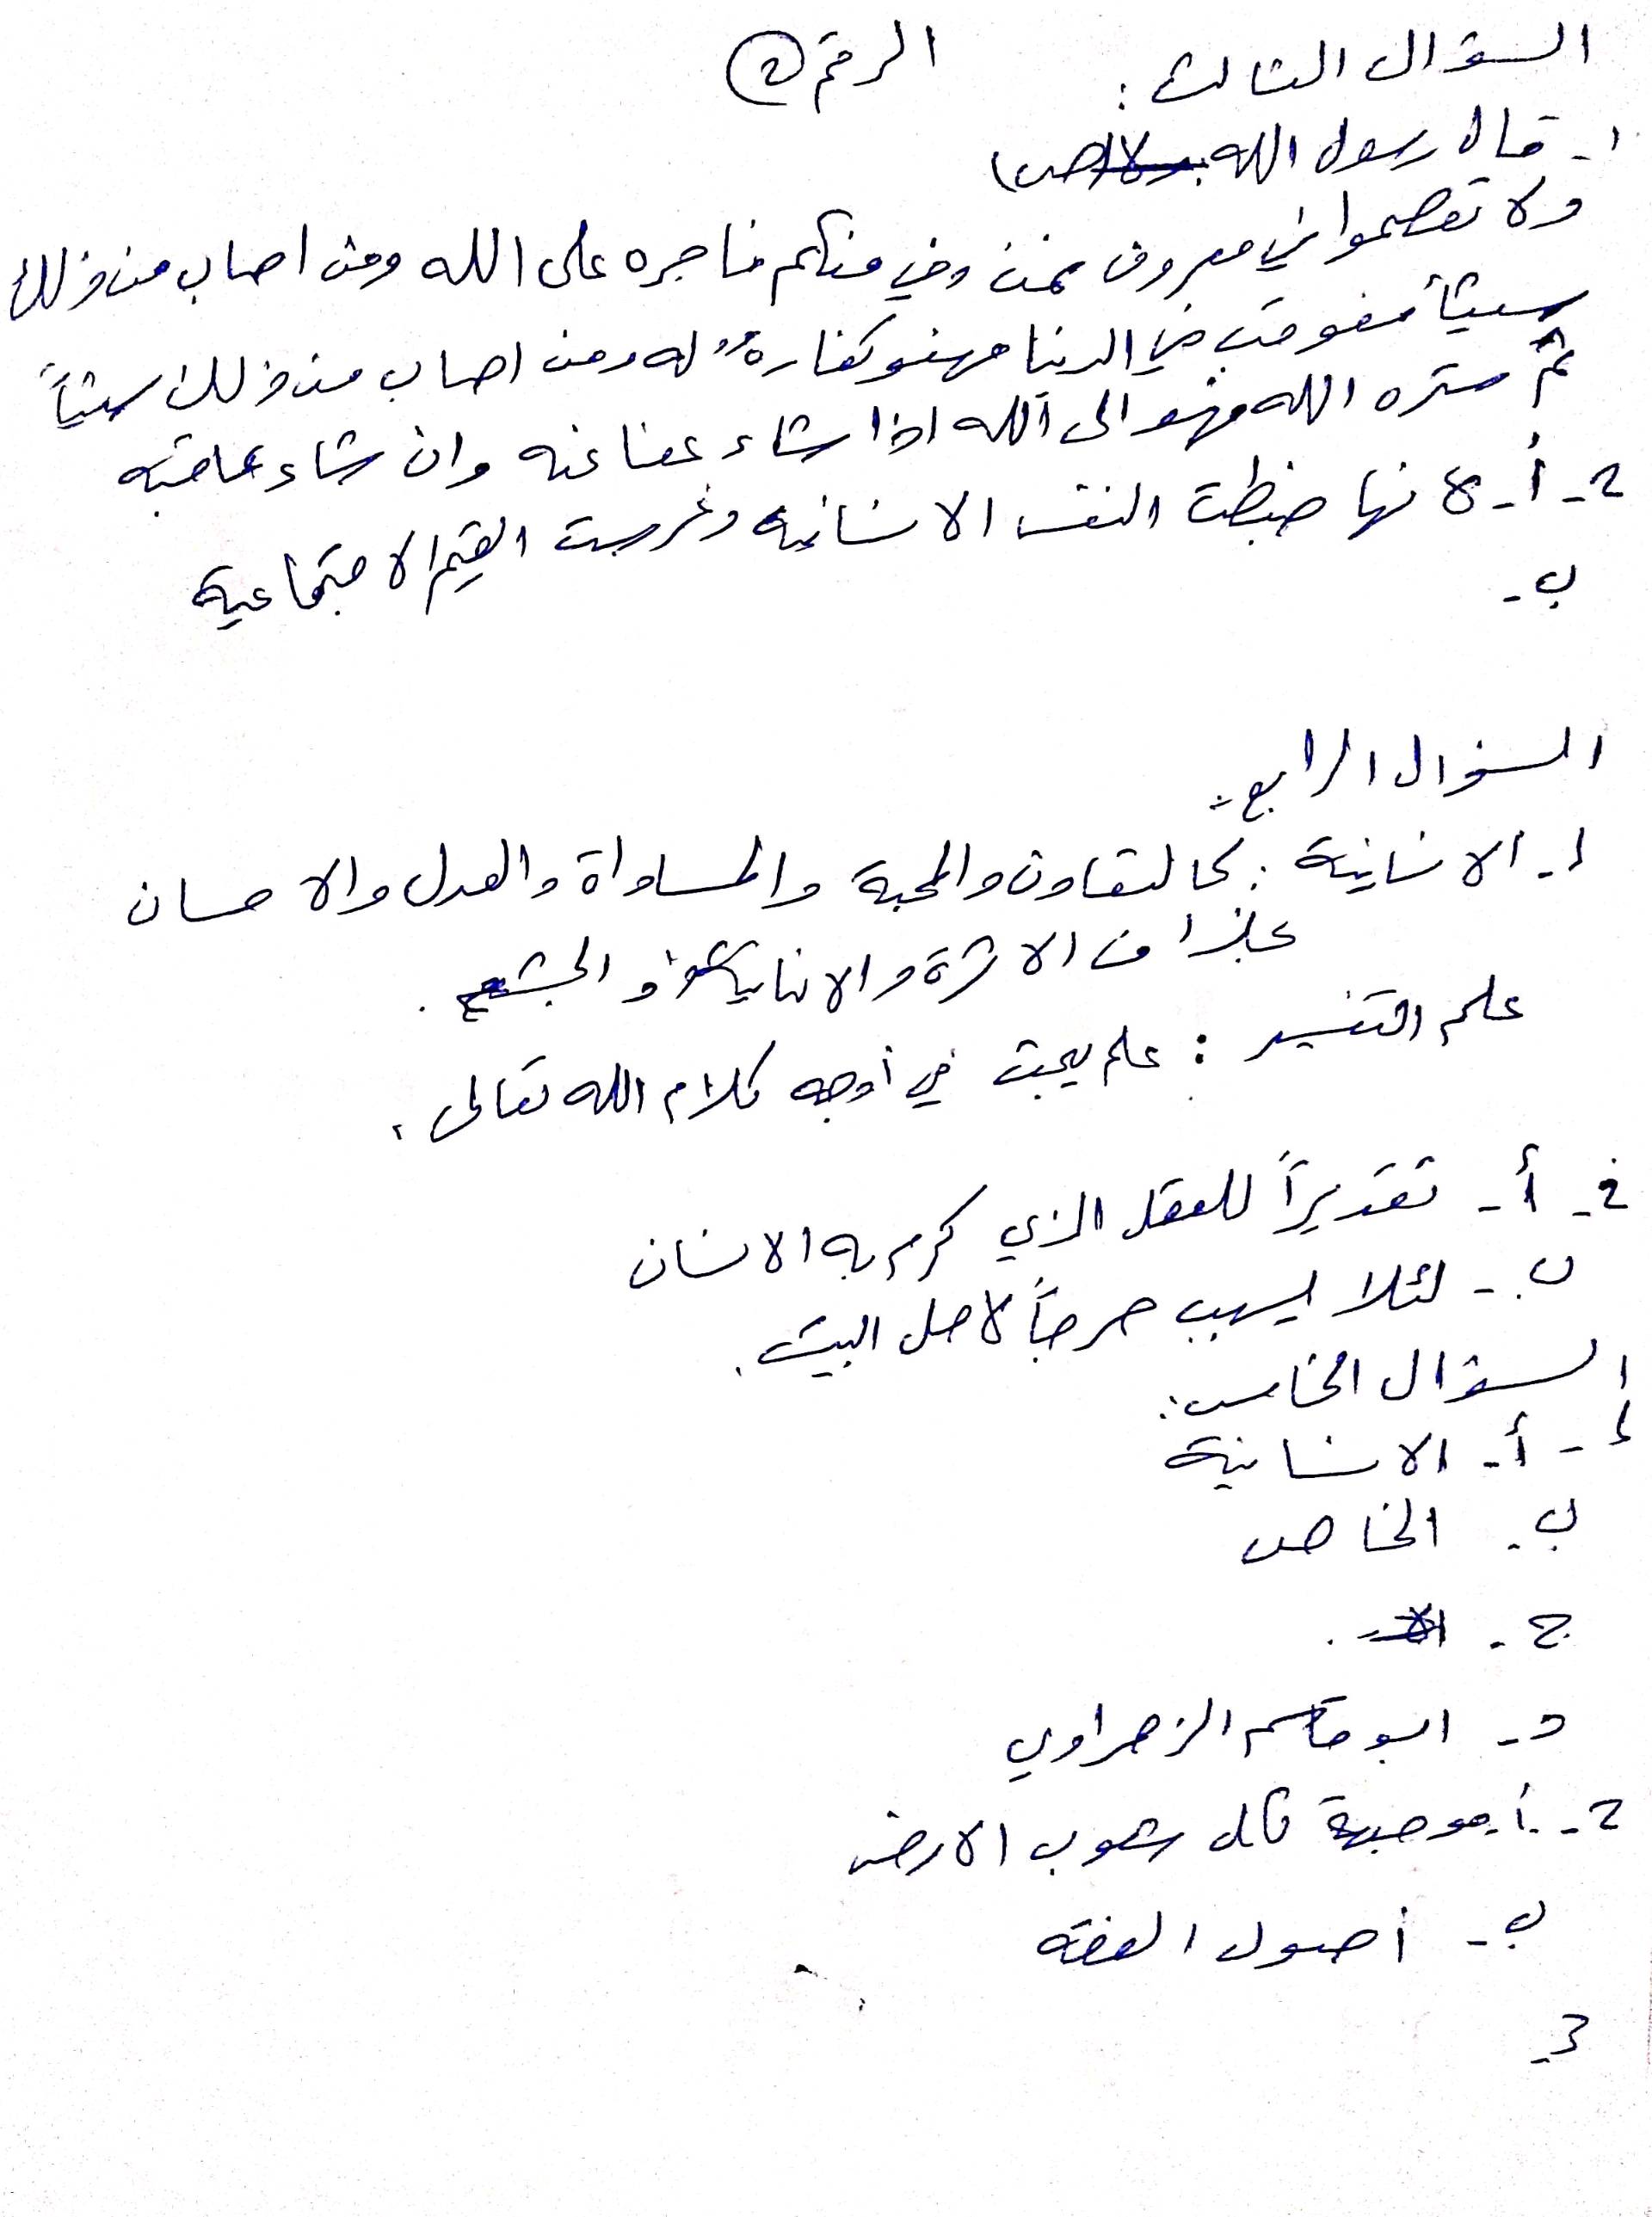 السؤال الثالث : الرقم 2
1- قال رسول الله (ص)
ولا تعصوا في معروف فمن وفى منكم فأجره على الله ومن اصاب من ذلك
سيئاً فعوقب في الدنيا فهو كفارةٌ له ومن اصاب من ذلك سيئاً
ثم ستره الله فهو الى الله اذا شاء عفا عنه وان شاء عاقبه
2- أ- لانها ضبطت النفس الانسانيه وغرست القيم الاجتماعية
ب-
السؤال الرابع :
1- الانسانية : كالتعاون والمحبة والمساواة والعدل والاحسان
الاثرة والانانية والجشع .
علم التفسير : علم يبحث في أوجه كلام الله تعالى .
2- أ- تقديراً للعقل الذي كرم به الانسان
ب- لئلا يسبب حرجاً لاهل البيت .
السؤال الخامس :
1- أ- الانسانية
ب- الخاص
ج- .
د- ابو قاسم الزهراوي
2- أ- موجهة لكل شعوب الارض
ب- أصول الفقه
3-